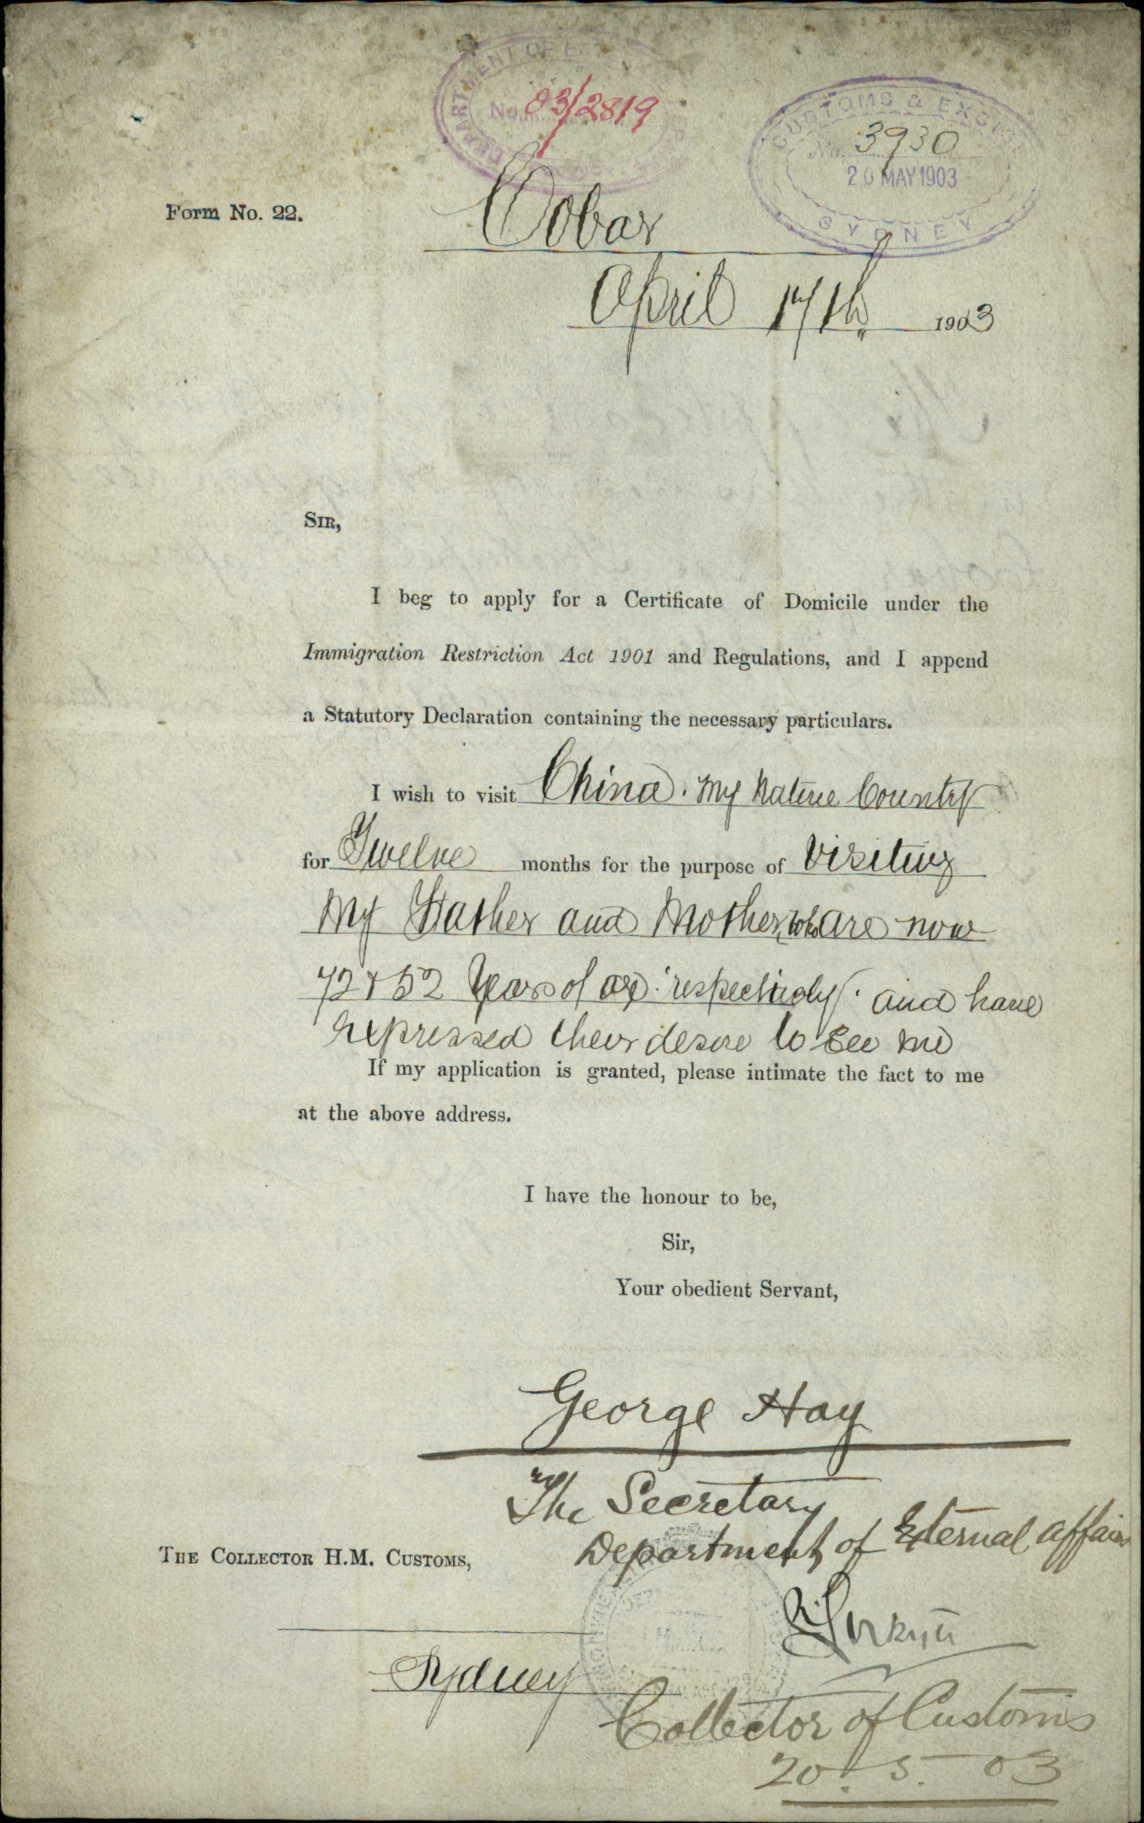 DEPARTMENT OF
No. 03/2819
CUSTOMS & EXCISE
No. 3930
20 MAY 1903
SYDNEY
Form No. 22.
Cobar
April 17th 1903
SIR,
I beg to apply for a Certificate of Domicile under the
Immigration Restriction Act 1901 and Regulations, and I append
a Statutory Declaration containing the necessary particulars.
I wish to visit China. My Native Country
for Twelve months for the purpose of Visiting
My Father and Mother, who are now
72 & 52 Years of age respectively. and have
expressed their desire to See me
If my application is granted, please intimate the fact to me
at the above address.
I have the honour to be,
Sir,
Your obedient Servant,
George Hay
The Secretary
Department of External Affairs
THE COLLECTOR H.M. CUSTOMS,
Sydney
Collector of Customs
20. 5. 03